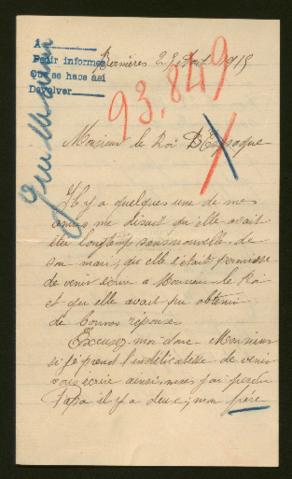 A
Pedir informes
Que se hace así
Devolver
Bernières 28 Août 1915
93.849
Monsieur le Roi D'Espagne
Il y a quelques une de mes
amies me disait qu'elle avait
été longtemp sans nouvelle de
son mari, qu'elle s'était permise
de venir écrire a Monsieur le Roi
et qu'elle avait pu obtenir
de bonnes réponses
Excusez moi donc Monsieur
si je prend l'indélicatesse de venir
vous écrire ainsi mes j'ai perdu
Papa il y a deux; mon frère